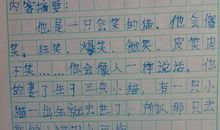 内容摘要：
他是一只会笑的猫，他会偷
笑、狂笑、爆笑、微笑、皮笑肉
不笑……他会像人一样说话，他
的妻子生了三只小猫，有一只小
猫一出生就去世了，所以那只